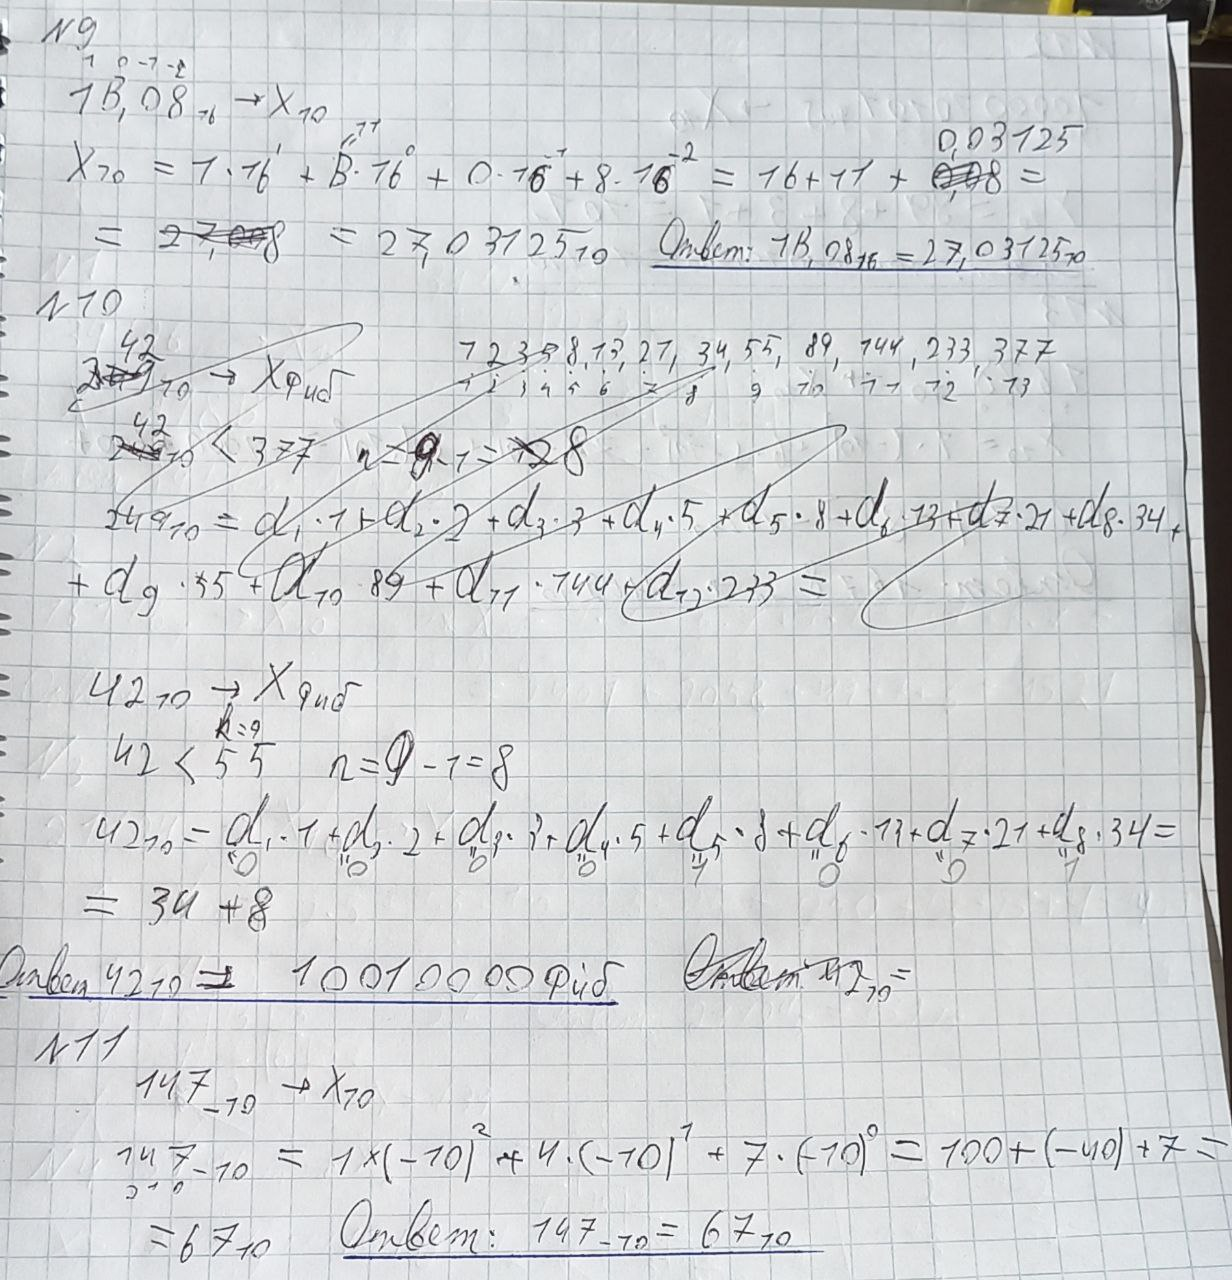 N9
1 0 -1 -2
1B,08₁₆ → X₁₀
11
X₁₀ = 1·16¹ + B·16⁰ + 0·16⁻¹ + 8·16⁻² = 16+11 + 0,03125 =
= 27,03125₁₀ Ответ: 1B,08₁₆ = 27,03125₁₀
N10
42₁₀ → Xфиб 1 2 3 5 8, 13, 21, 34, 55, 89, 144, 233, 377
1 2 3 4 5 6 7 8 9 10 11 12 13
42₁₀ < 377 n = 9-1 = 8
249₁₀ = d₁·1 + d₂·2 + d₃·3 + d₄·5 + d₅·8 + d₆·13 + d₇·21 + d₈·34 +
+ d₉·55 + d₁₀·89 + d₁₁·144 + d₁₂·233 =
42₁₀ → Xфиб
k=9
42 < 55 n = 9-1=8
42₁₀ = d₁·1 + d₂·2 + d₃·3 + d₄·5 + d₅·8 + d₆·13 + d₇·21 + d₈·34 =
0 0 0 0 1 0 0 1
= 34 + 8
Ответ 42₁₀ = 10010000фиб Ответ: 42₁₀=
N11
147₋₁₀ → X₁₀
147₋₁₀ = 1×(-10)² + 4·(-10)¹ + 7·(-10)⁰ = 100+(-40)+7 =
2 1 0
= 67₁₀ Ответ: 147₋₁₀ = 67₁₀